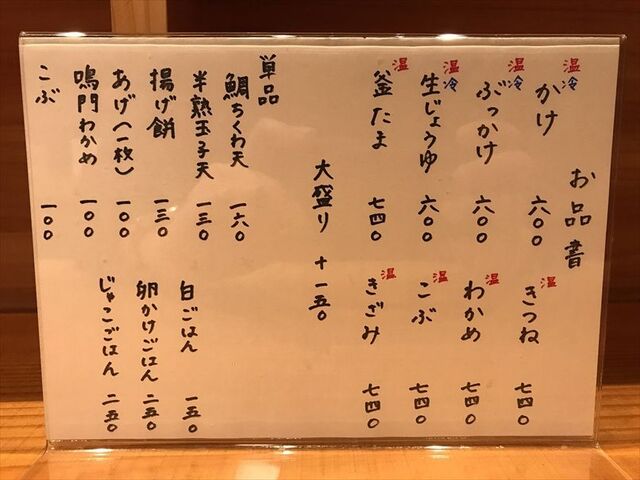 お品書
温 冷 かけ 六〇〇
温 冷 ぶっかけ 六〇〇
温 冷 生じょうゆ 六〇〇
温 釜たま 七四〇
温 きつね 七四〇
温 わかめ 七四〇
温 こぶ 七四〇
温 きざみ 七四〇
大盛り +一五〇
単品
鯛ちくわ天 一六〇
半熟玉子天 一三〇
揚げ餅 一三〇
あげ(一枚) 一〇〇
鳴門わかめ 一〇〇
こぶ 一〇〇
白ごはん 一五〇
卵かけごはん 二五〇
じゃこごはん 二五〇